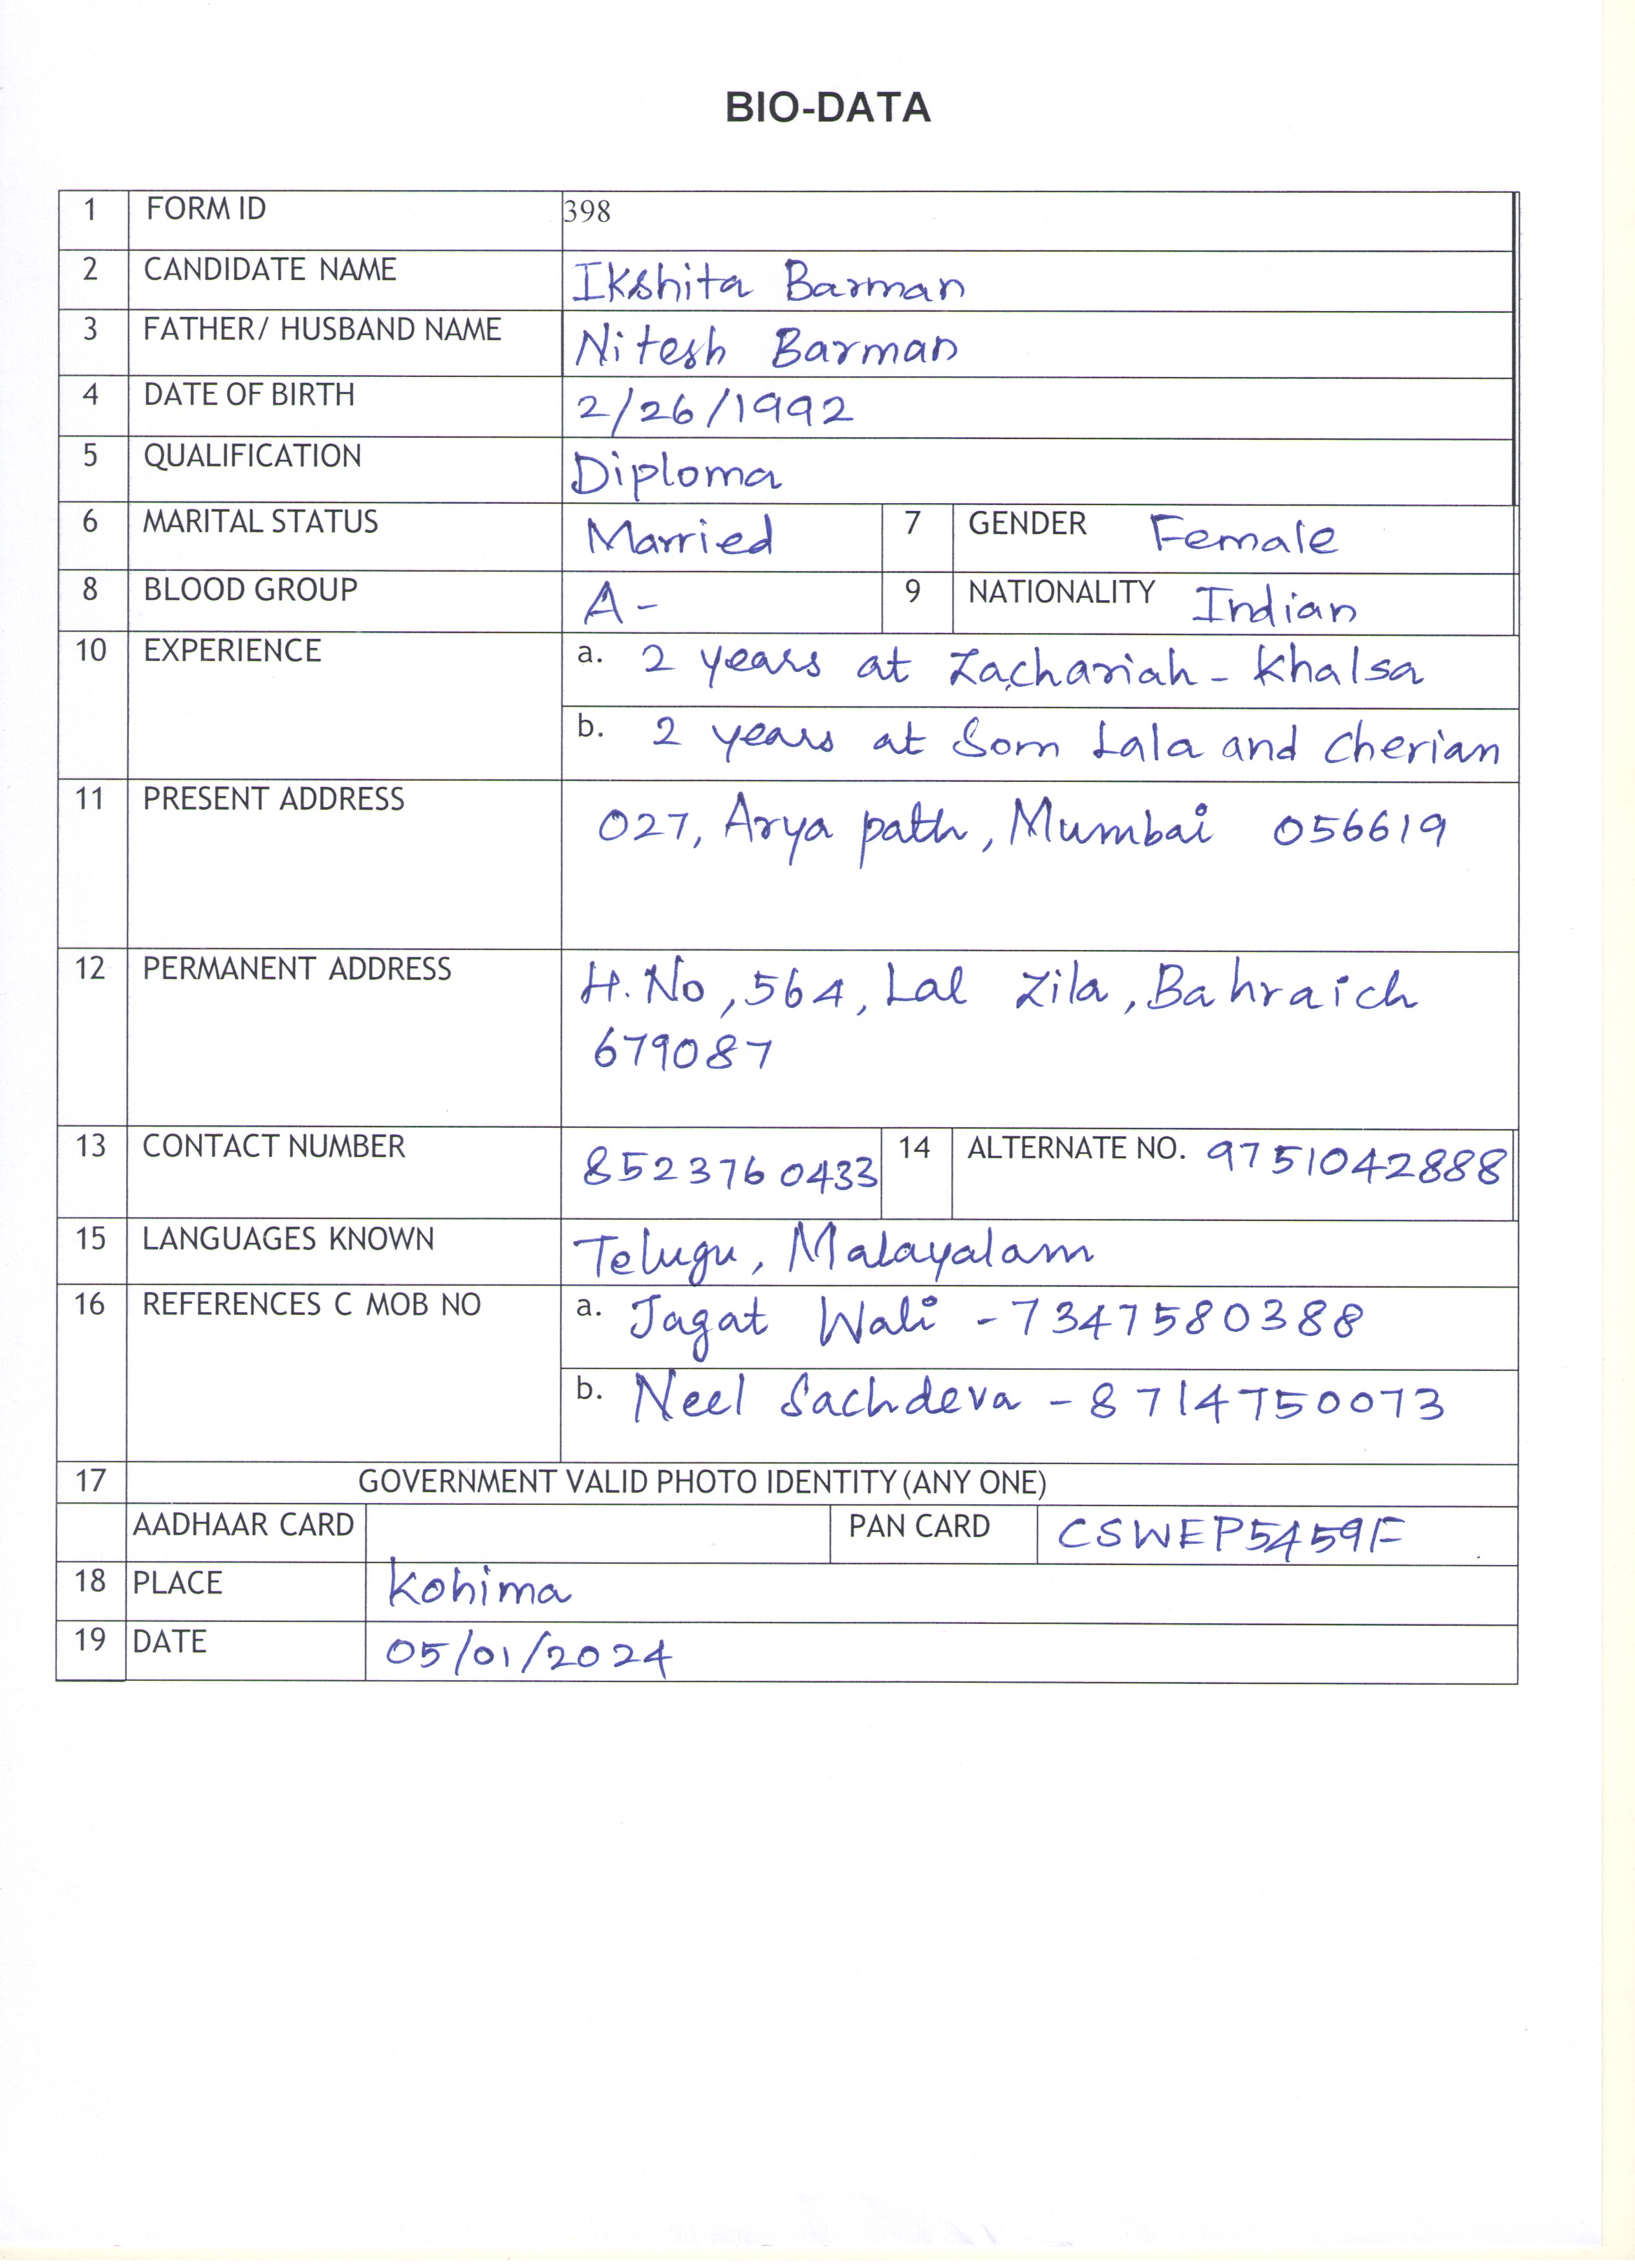 BIO-DATA
1 FORM ID 398
2 CANDIDATE NAME Ikshita Barman
3 FATHER/ HUSBAND NAME Nitesh Barman
4 DATE OF BIRTH 2/26/1992
5 QUALIFICATION Diploma
6 MARITAL STATUS Married 7 GENDER Female
8 BLOOD GROUP A- 9 NATIONALITY Indian
10 EXPERIENCE a. 2 years at Zachariah-Khalsa
b. 2 years at Som Lala and Cherian
11 PRESENT ADDRESS 027, Arya path, Mumbai 056619
12 PERMANENT ADDRESS H.No,564, Lal Zila, Bahraich
679087
13 CONTACT NUMBER 8523760433 14 ALTERNATE NO. 9751042888
15 LANGUAGES KNOWN Telugu, Malayalam
16 REFERENCES C MOB NO a. Jagat Wali - 7347580388
b. Neel Sachdeva - 8714750073
17 GOVERNMENT VALID PHOTO IDENTITY (ANY ONE)
AADHAAR CARD PAN CARD CSWEP5459F
18 PLACE Kohima
19 DATE 05/01/2024